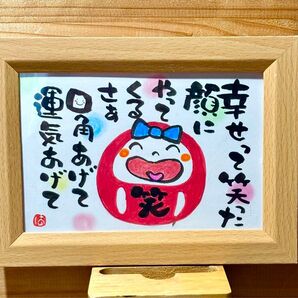 幸せって笑った
顔に
やって
くる
さぁ
口角あげて
運気あげて
笑